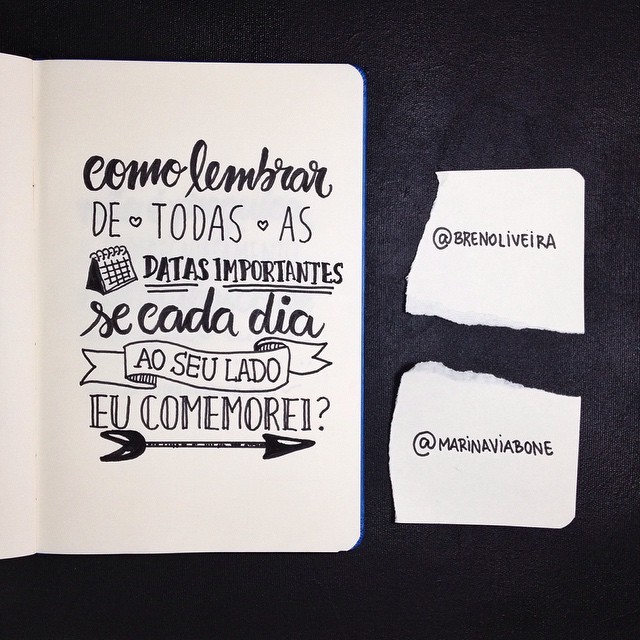 como lembrar
DE TODAS AS
DATAS IMPORTANTES
se cada dia
AO SEU LADO
EU COMEMOREI?
@BRENOLIVEIRA
@MARINAVIABONE